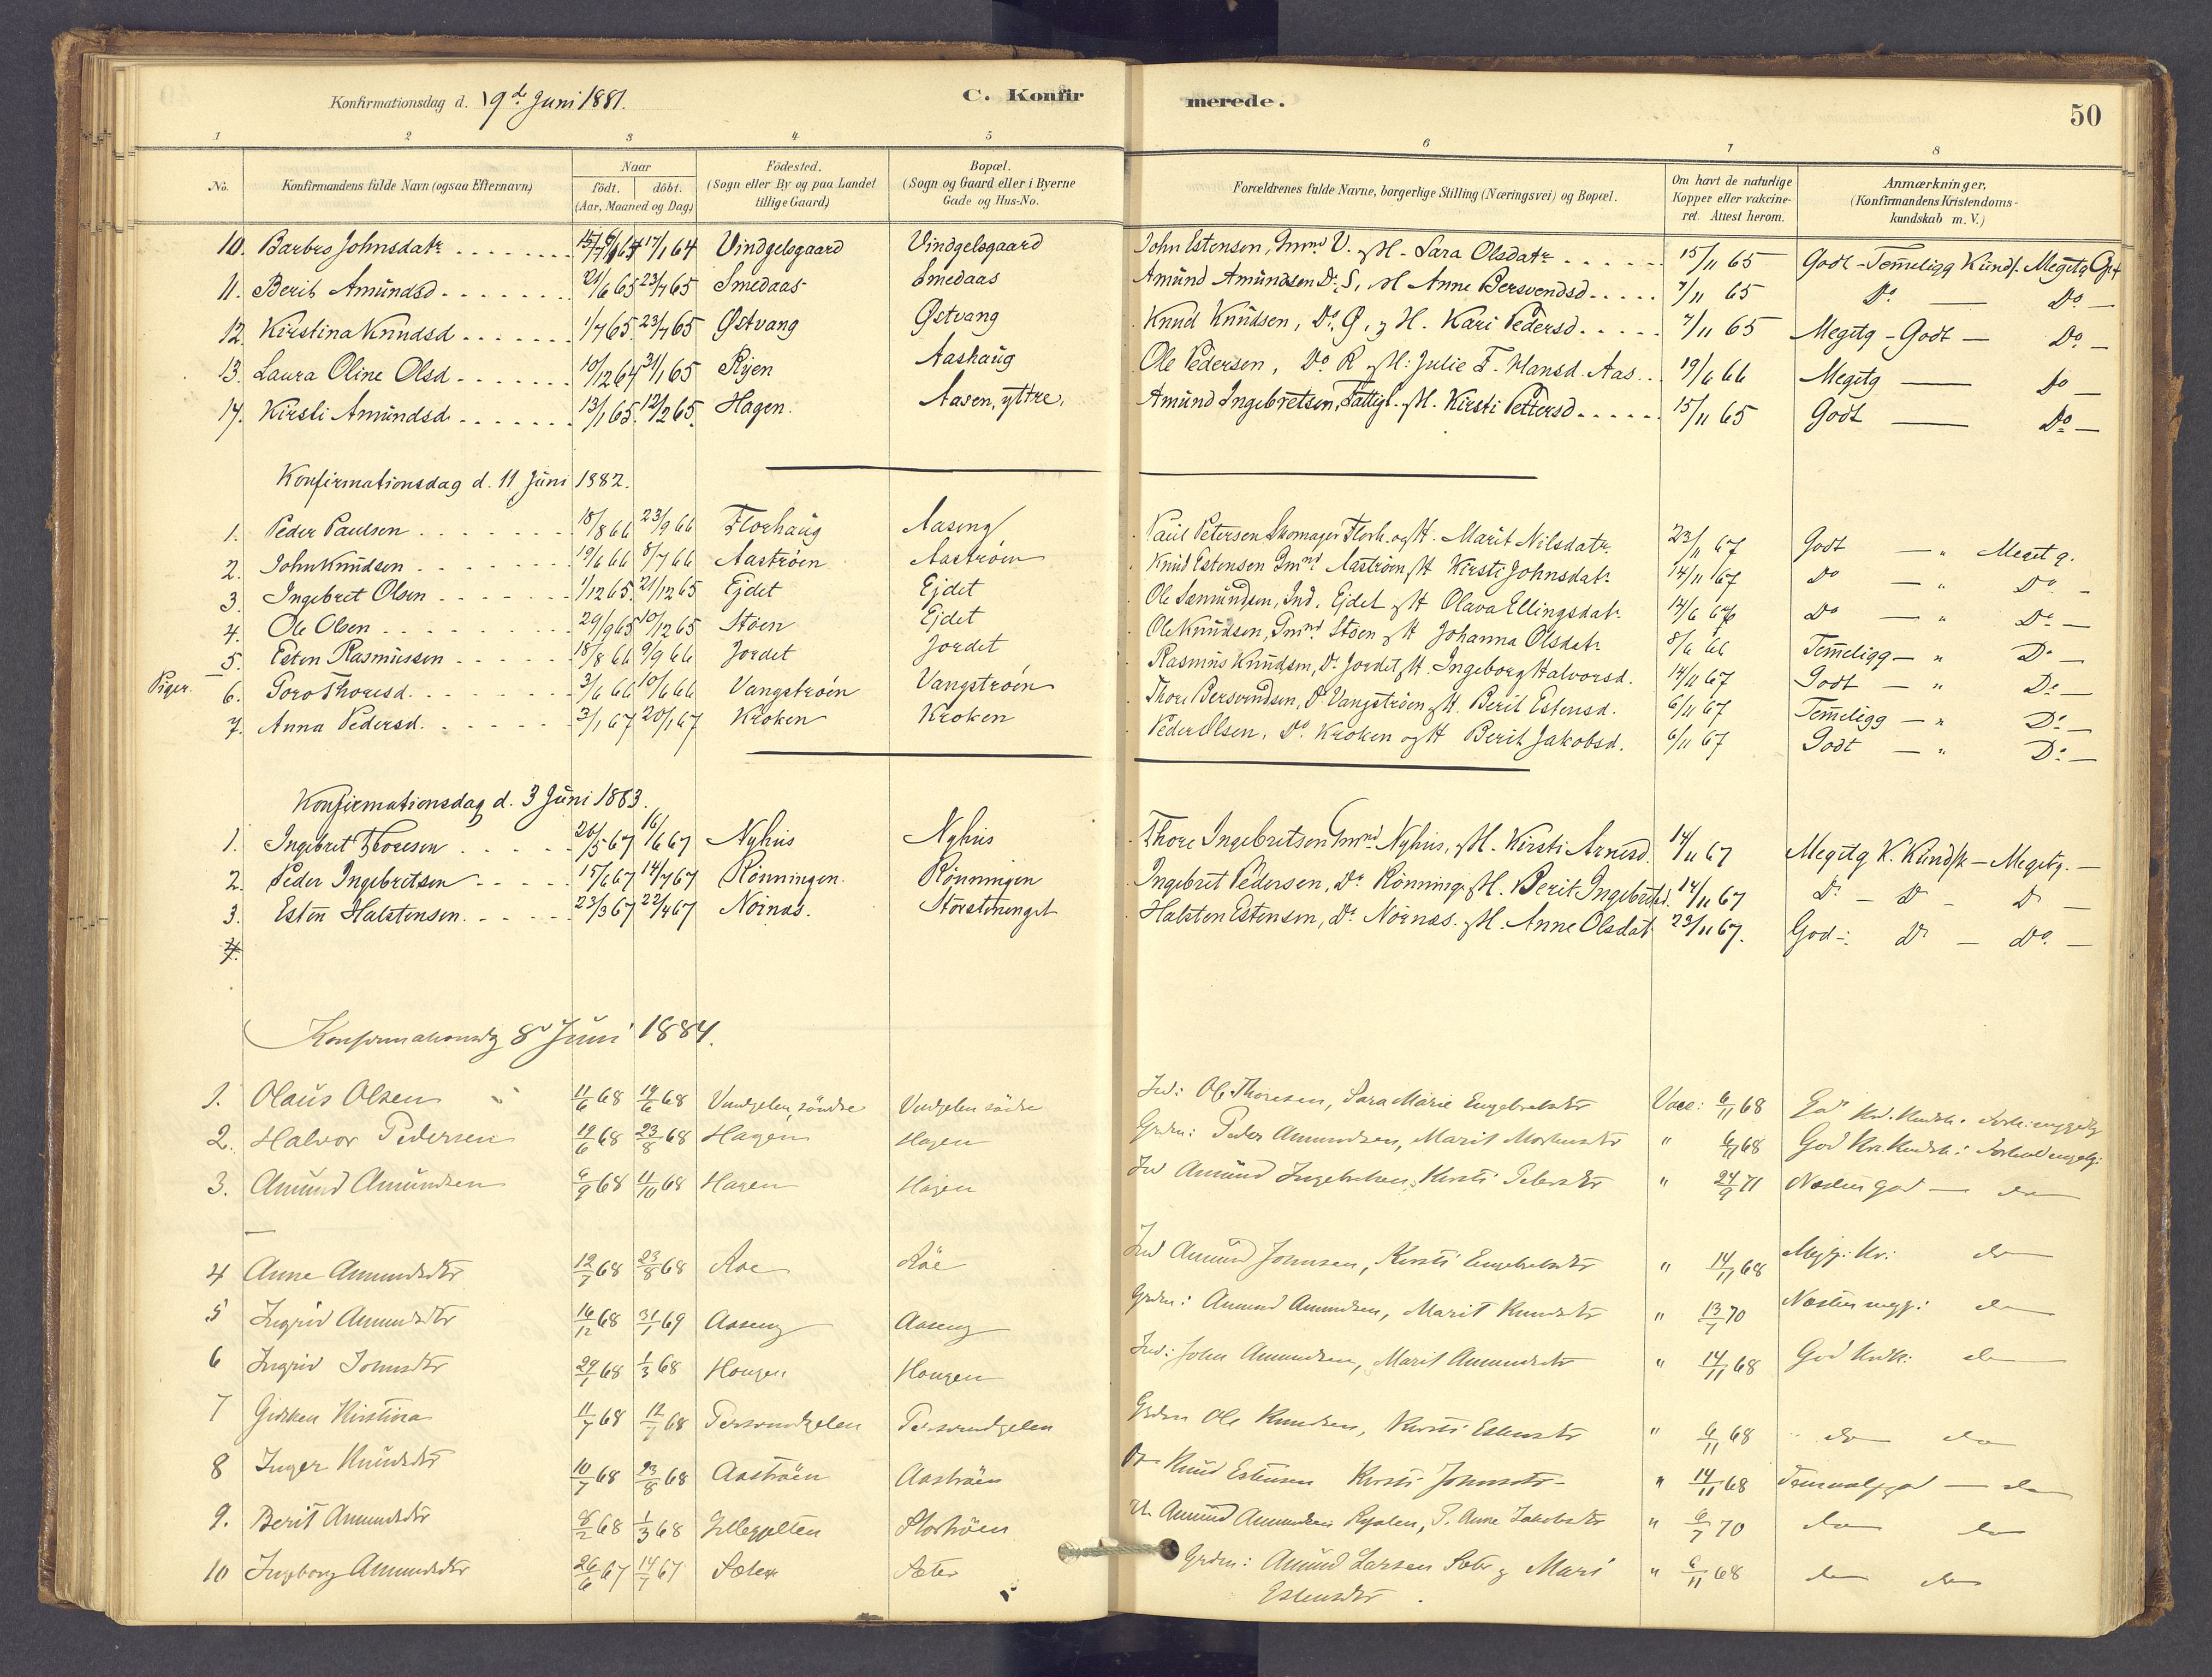 Konfirmationsdag d. 19de Juni 1881. C. Konfirmerede. 50
1 2 3 4 5 6 7 8
No. Konfirmandens fulde Navn (ogsaa Efternavn) Naar födt. döbt. (Aar, Maaned og Dag) Födested. (Sogn eller By og paa Landet tillige Gaard) Bopæl. (Sogn og Gaard eller i Byerne Gade og Hus-No. Forældrenes fulde Navne, borgerlige Stilling (Næringsvei) og Bopæl. Om havt de naturlige Kopper eller vakcineret. Attest herom. Anmærkninger. (Konfirmandens Kristendomskundskab m. V.)
10. Barbro Johnsdatr 17/1 64 Vindgelsgaard Vindgelsgaard John Estensen, Gmnd V. og H. Sara Olsdatr 15/11 65 Godt - Temeligg Kundsk. Megetg Opf
11. Berit Amündsd 21/6 65 23/7 65 Smedaas Smedaas Amünd Amündsen Do S, og H Anne Bersvendsd 7/11 65 Do — Do —
12. Kirstina Knudsd 1/7 65 23/7 65 Østvang Østvang Knud Knüdsen, Do Ø, og H. Kari Pedersd 7/11 65 Megetg - Godt — Do —
13. Laura Oline Olsd 10/12 64 31/1 65 Ryen Aashaüg Ole Pedersen, Do R og H: Julie F. Hansd. Aas 19/6 66 Megetg — Do —
14. Kirsti Amündsd 13/1 65 12/2 65 Hagen. Aasen, yttre. Amünd Ingebretsen, Fattigl. og H. Kirsti Pettersd 15/11 65 Godt — Do —
Konfirmationsdag d. 11 Jüni 1882.
1. Peder Paulsen 18/8 66 23/9 66 Florhaüg Aaseng Paül Petersen Skomager Florh. og H. Marit Nilsdatr 23/11 67 Godt — " Meget g.
2. John Knüdsen 19/6 66 8/7 66 Aaströen Aaströen Knüd Estensen Gmnd Aaströen og H Kirsti Johnsdatr 14/11 67 Do — " Do —
3. Ingebret Olsen 1/12 65 21/12 65 Ejdet Ejdet Ole Samündsen, Ind. Ejdet og H Olava Ellingsdatr 14/6 67 Do — " Do —
4. Ole Olsen 29/9 65 10/12 65 Støen Ejdet Ole Knüdsen, Gmnd Støen og H Johanna Olsdatr 8/6 66 Temeligg — " Do —
5. Esten Rasmüssen 18/8 66 9/9 66 Jordet Jordet Rasmüs Knüdsen, Do Jordet og H. Ingeborg Halvorsd. 14/11 67 Godt — " Do —
Piger. 6. Goro Thoresd. 3/6 66 10/6 66 Vangströen Vangströen Thore Bersvendsen, Do Vangströen og H. Berit Estensd. 6/11 67 Temeligg — " Do —
7. Anna Pedersd. 3/1 67 20/1 67 Kroken Kroken Peder Olsen, Do Kroken og H Berit Jakobsd. 6/11 67 Godt — " Do —
Konfirmationsdag d. 3 Jüni 1883.
1. Ingebret Thoresen 26/5 67 16/6 67 Nyhüs Nyhüs Thore Ingebretsen Gmnd Nyhüs, og H. Kirsti Arnesd. 14/11 67 Megetg K. Kündsk — Megetg. —
2. Peder Ingebretsen 15/6 67 14/7 67 Rönningen. Rönningen Ingebret Pedersen, Do Rönning. og H. Berit Ingebretsd. 14/11 67 Do — Do — Do —
3. Esten Halstensen. 23/3 67 22/4 67 Nörnæs. Storstenenget Halsten Estensen, Do Nörnæs. og H. Anne Olsdat 23/11 67. God: Do — Do. —
4.
Konfirmationsdg 8d Juni 1884.
1. Olaüs Olsen 11/6 68 14/6 68 Vindgelen, söndre Vindgelen söndre Ind: Ole Thoresen, Sara Marie Engebretsdtr Vacc: 6/11 68
2. Halvor Pedersen 19/6 68 23/8 68 Hagen Hagen Grdm: Peder Amundsen, Marit Mortensdtr " 6/11 68 God Kr. Kundsk:
3. Amünd Amündsen 6/9 68 11/10 68 Hagen Hagen Ind Amünd Ingebretsen, Kirsti Petersdtr " 24/9 71 Næsten god — do
4 Anne Amundsdtr 12/7 68 23/8 68 Roe Röe Ind Amünd Johnsen, Kirsti Engebretsdtr " 14/11 68 Megg: Kr: do
5 Ingrid Amundsdtr 16/12 68 31/1 69 Aaseng Aaseng Grdm: Amund Amundsen, Marit Knudsdtr " 13/7 70 Næsten megg: do
6 Ingrid Johnsdtr 29/1 68 1/3 68 Hougen Hougen Ind: John Amundsen, Marit Amundsdtr " 14/11 68 God Krdk: do
7 Gidsken Kirstina 11/7 68 12/7 68 Persvendgelen Persvendgelen Grdm Ole Knudsen, Kirsti Estensdtr " 6/11 68 " do do
8 Inger Knüdsdtr 10/7 68 23/8 68 Aaströen Aaströen Do Knüd Estensen Kirsti Johnsdtr " 14/11 68 do
9. Berit Amundsdtr 8/2 68 1/3 68 Storhöen Amünd Amundsen Ryalen, P. Anne Jakobsdtr " 6/7 70 do do
10 Ingeborg Amundsdtr 26/6 67 14/7 67 Sæter Sæter Grdm: Amünd Larsen Sæter og Mari Estensdtr. " 6/11 68 do do